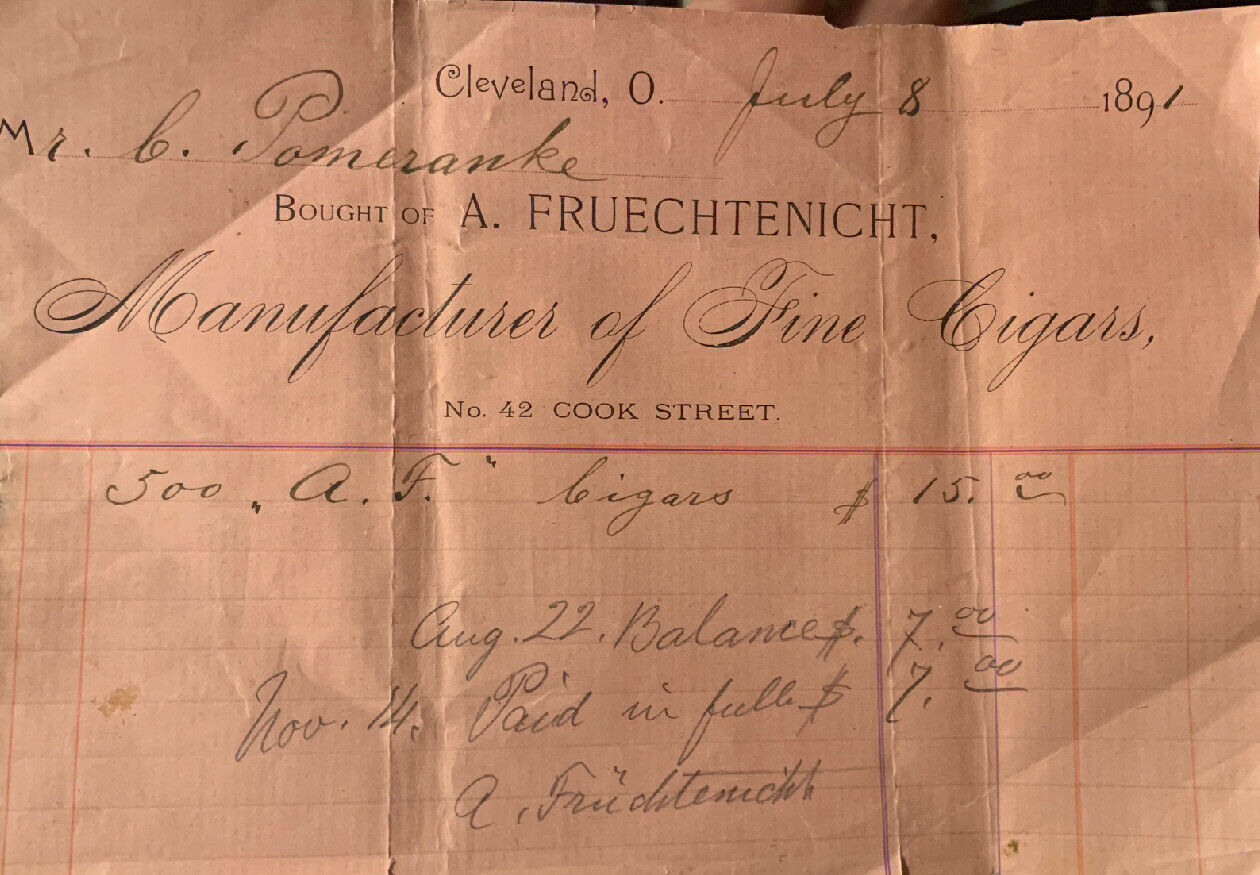 Cleveland, O. July 8 1891
Mr. C. Pomeranke
BOUGHT OF A. FRUECHTENICHT,
Manufacturer of Fine Cigars,
No. 42 COOK STREET.
500 „A. F.“ Cigars $ 15. 00
Aug. 22. Balance $. 7. 00
Nov. 14. Paid in full $ 7. 00
A. Früchtenicht